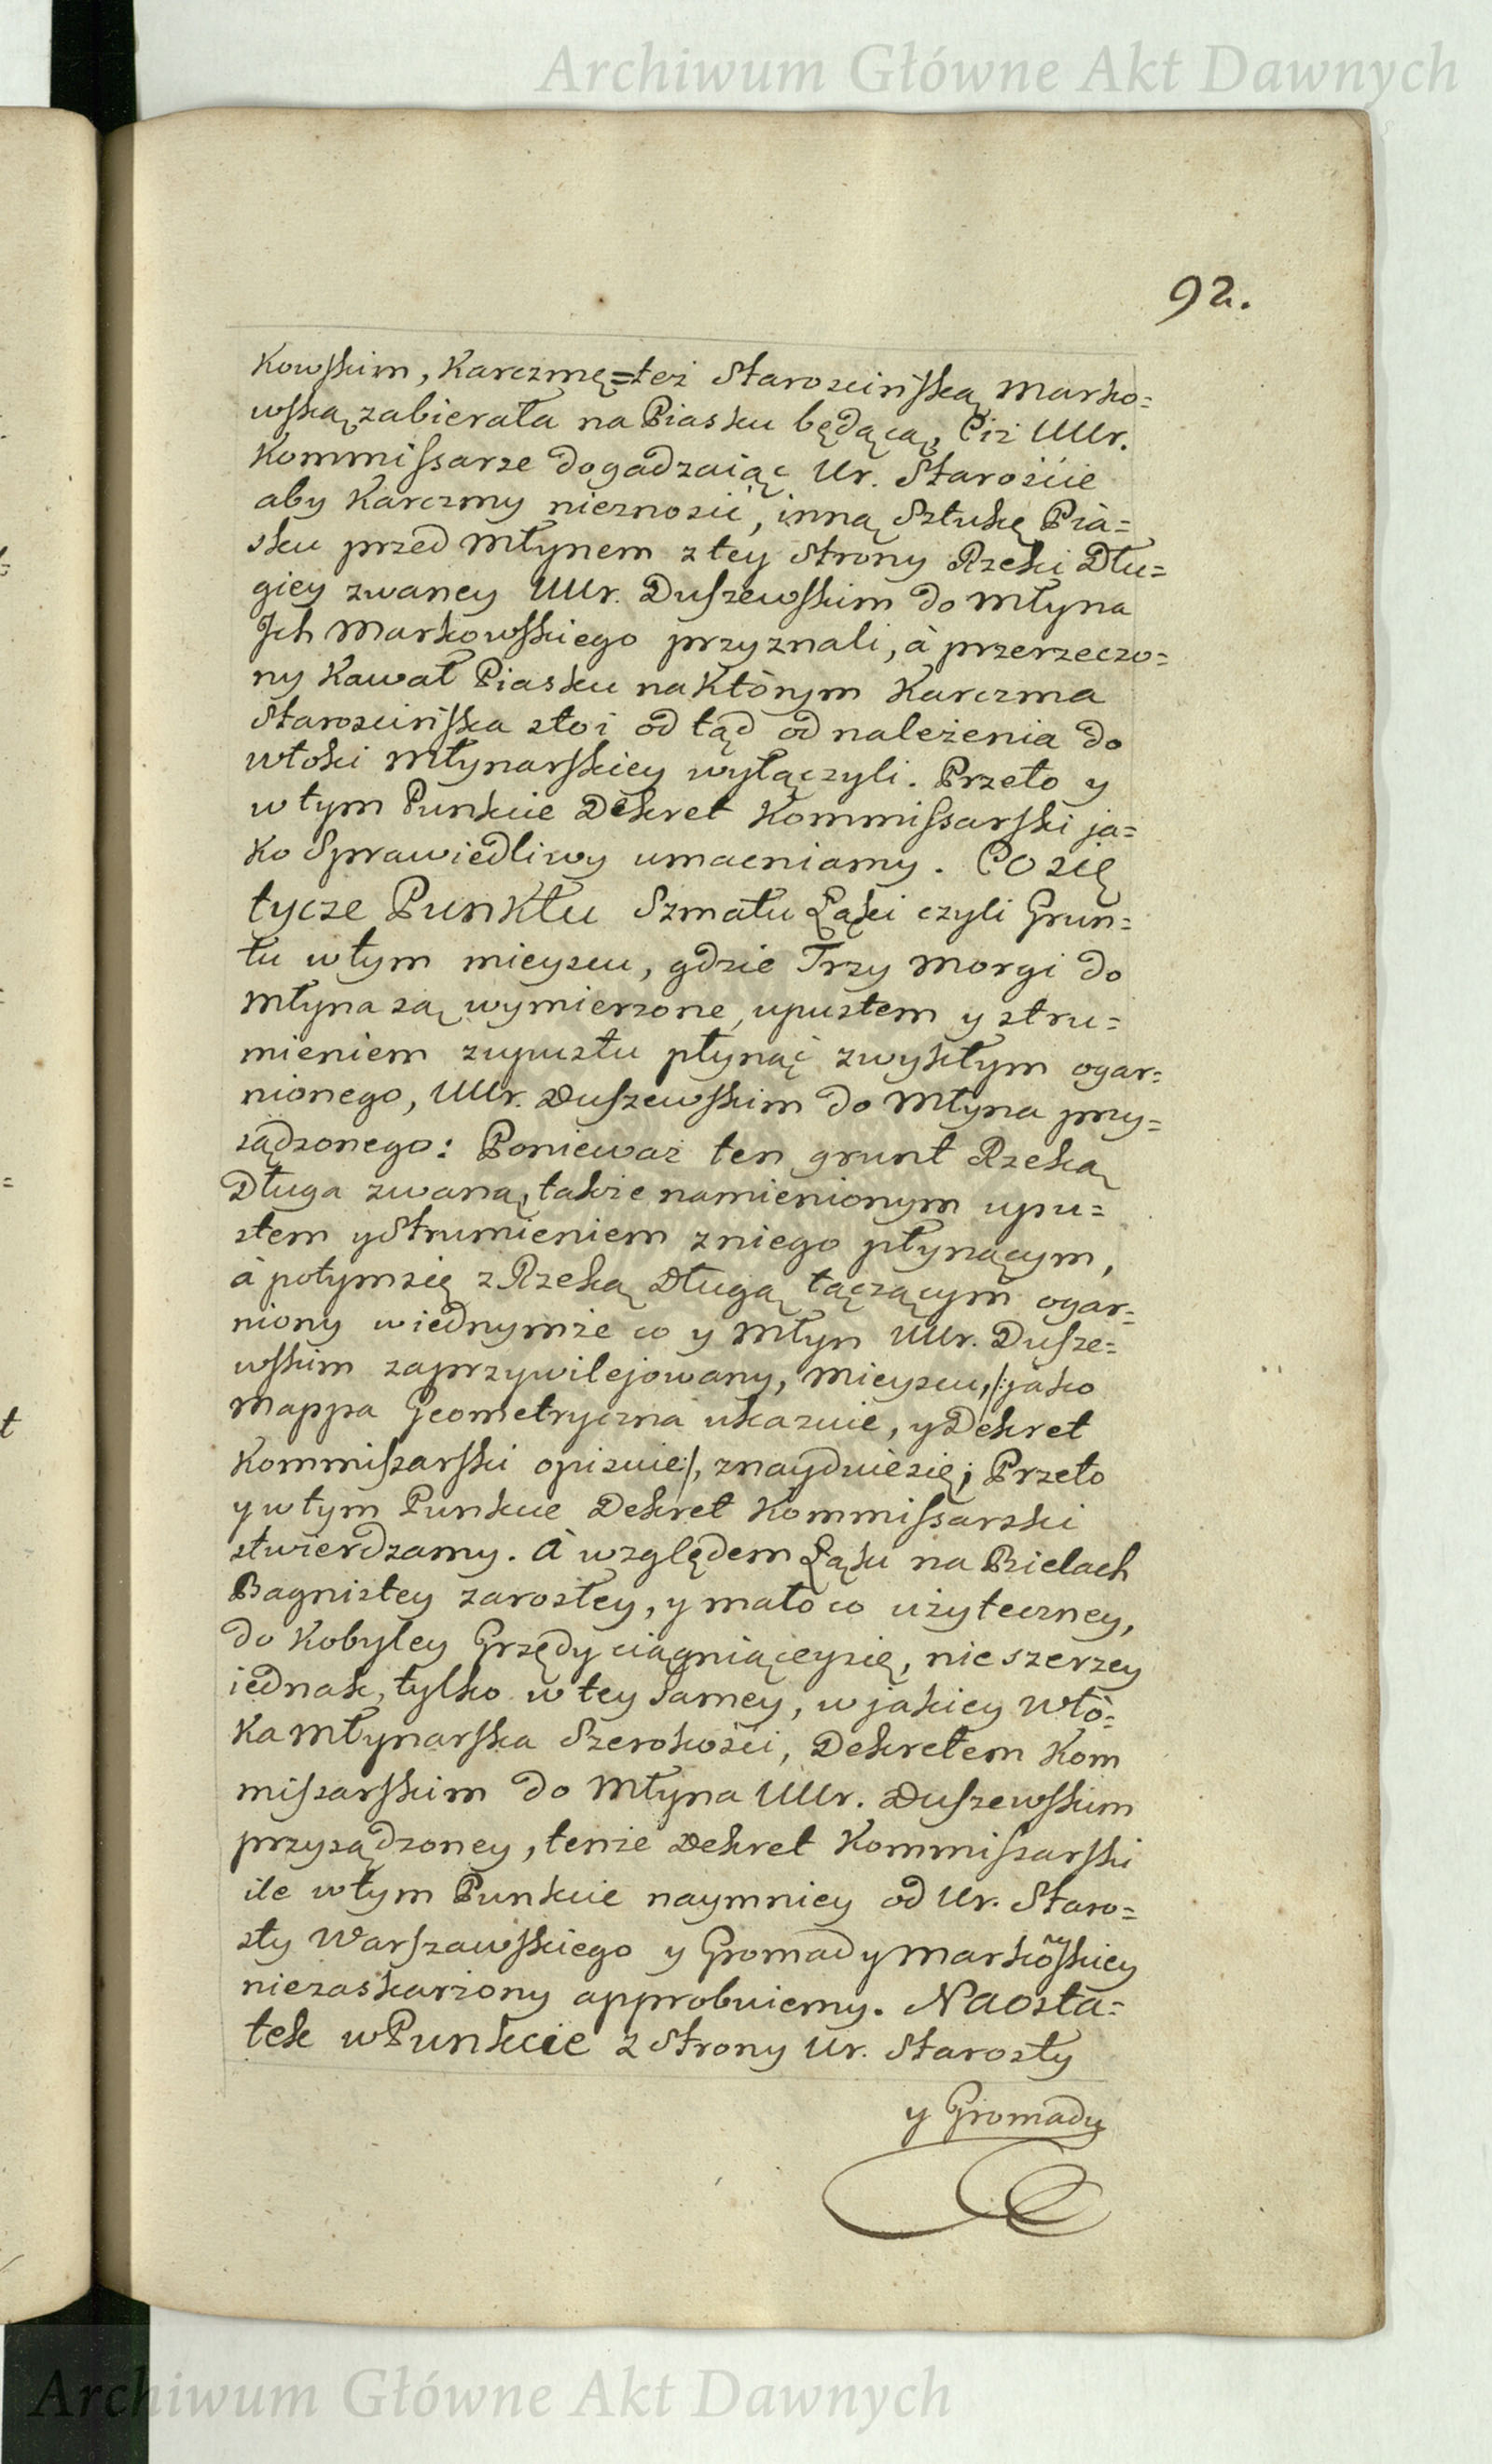 Archiwum Główne Akt Dawnych
92.
Kowskim, Karczmę=też Staroscińską Marko=
wską zabierała na Piasku będącą, Ciż UUr.
Kommissarze dogadzaiąc Ur. Staroście
aby Karczmy nieznosić, inną Sztukę Pia=
sku przed Młynem z tey Strony Rzeki Dłu=
giey zwaney UUr. Duszewskim do Młyna
Ich Markowskiego przyznali, à przerzeczo=
ny Kawał Piasku na Którym Karczma
Starościńska stoi od tąd od należenia do
włoki Młynarskiey wyłączyli. Przeto y
w tym Punkcie Dekret Kommissarski ja=
ko Sprawiedliwy umacniamy. Co się
tycze Punktu Szmatu Łąki czyli Grun=
tu w tym mieyscu, gdzie Trzy Morgi do
Młyna są wymierzone, upustem y stru=
mieniem zupustu płynąć zwykłym ogar=
nionego, UUr. Duszewskim do Młyna przy=
sądzonego: Ponieważ ten grunt Rzeką
Długa zwaną, także namienionym upu=
stem y Strumieniem zniego płynącym,
à potym się z Rzeką Długą łączącym ogar=
niony wiednymże co y Młyn UUr. Dusze=
wskim zaprzywilejowany, mieyscu, /:jako
Mappa Geometryczna ukazuie, y Dekret
Kommissarski opisuie:/, znayduie się; Przeto
y w tym Punkcie Dekret Kommissarski
stwierdzamy. à względem Łąki na Bielach
Bagnistey zarosłey, y mało co użyteczney,
do Kobyłey Grzędy ciągniąceysię, nie szerzey
iednak, tylko w tey Samey, w jakiey Wło=
Ka Młynarska Szerokości, Dekretem Kom
missarskim do Młyna UUr. Duszewskim
przysądzoney, tenże Dekret Kommissarski
ile w tym Punkcie naymniey od Ur. Staro=
sty Warszawskiego y Gromady Markowskiey
niezaskarżony approbuiemy. Naosta=
tek w Punkcie z Strony Ur. Starosty
y Gromady
Archiwum Główne Akt Dawnych